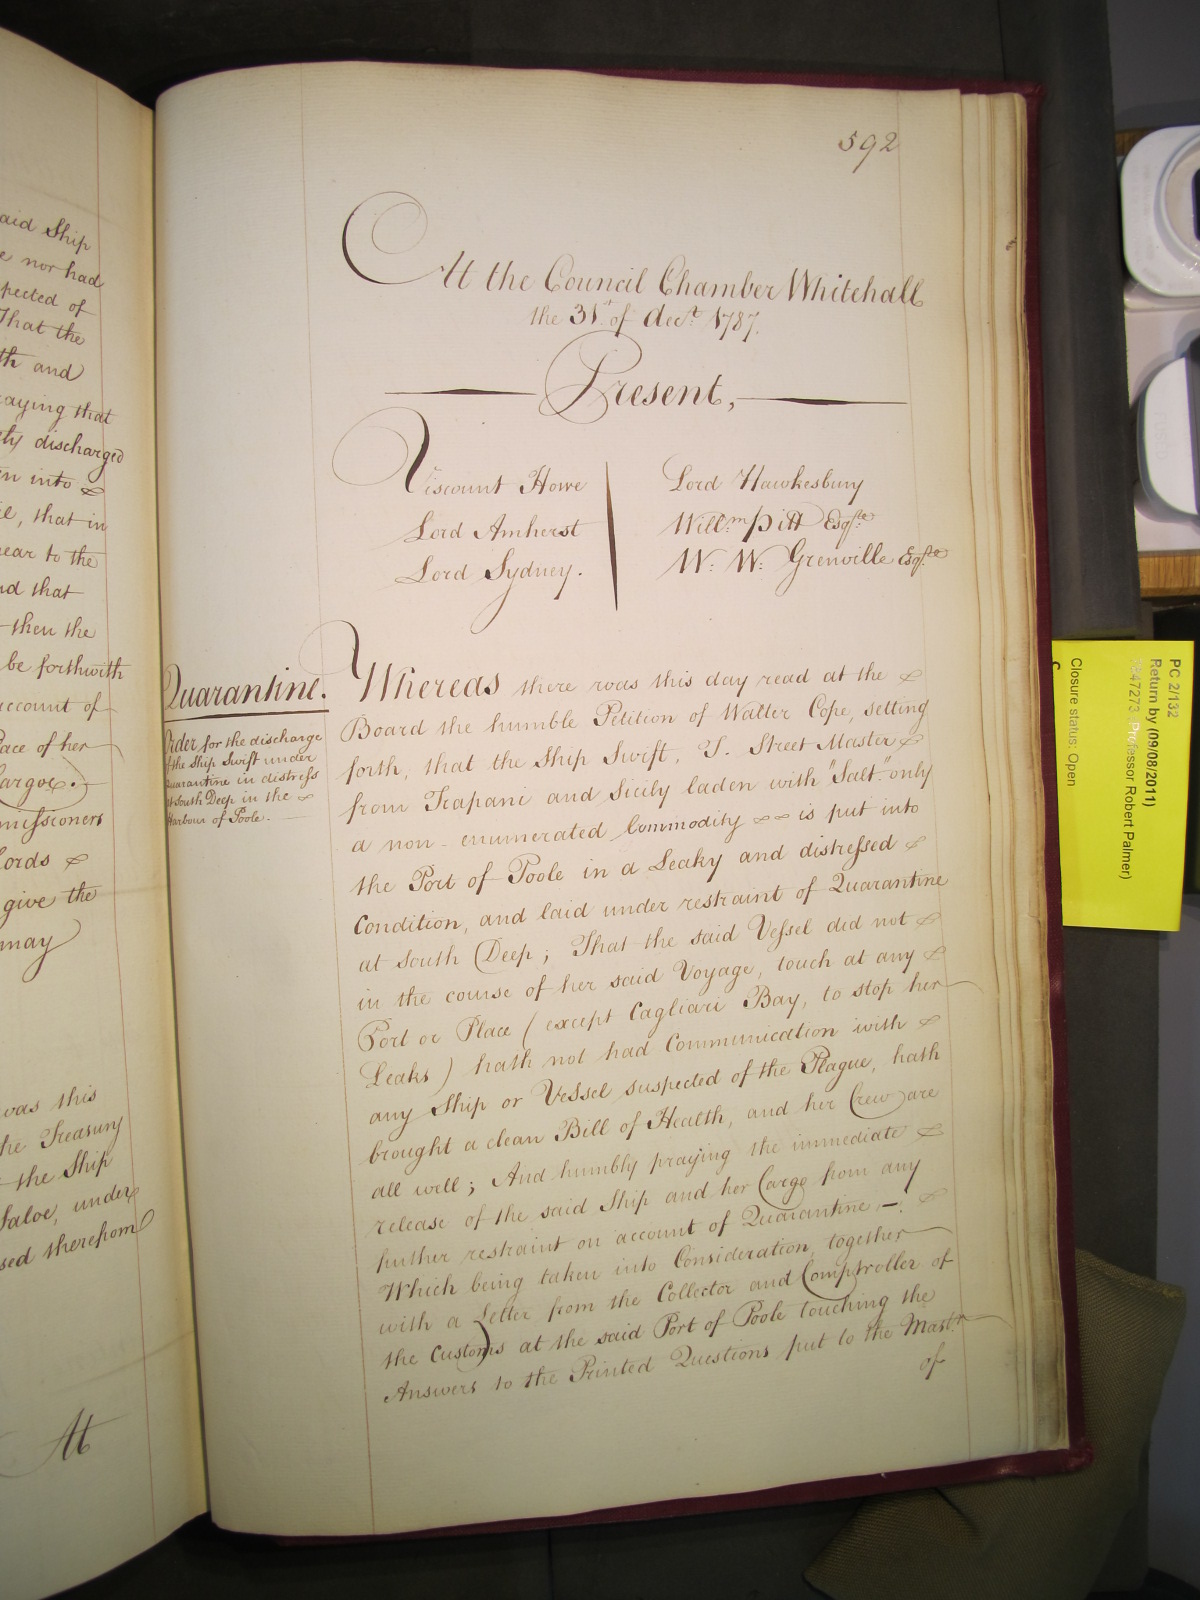 aid Ship
nor had
pected of
That the
th and
aying that
ty discharged
en into &
that in
ear to the
nd that
then the
be forthwith
account of
Pace of her
Cargoe.
missioners
Lords &
give the
may
was this
he Treasury
the Ship
Saloe, under
sed therefrom
At
592
At the Council Chamber Whitehall
the 31st of Decr. 1787.
Present,
Viscount Howe
Lord Amherst
Lord Sydney.
Lord Hawkesbury
Willm. Pitt Esqre.
W: W: Grenville Esqre.
Quarantine.
Order for the discharge
of the Ship Swift under
Quarantine in distress
at South Deep in the
Harbour of Poole.
Whereas there was this day read at the
Board the humble Petition of Walter Cope, setting
forth, that the Ship Swift, T. Street Master
from Trapani and Sicily laden with "Salt" only
a non-enumerated Commodity is put into
the Port of Poole in a Leaky and distressed
Condition, and laid under restraint of Quarantine
at South Deep; That the said Vessel did not
in the course of her said Voyage, touch at any
Port or Place (except Cagliari Bay, to stop her
Leaks) hath not had Communication with
any Ship or Vessel suspected of the Plague, hath
brought a clean Bill of Health, and her Crew are
all well; And humbly praying the immediate
release of the said Ship and her Cargo from any
further restraint on account of Quarantine —:
Which being taken into Consideration, together
with a Letter from the Collector and Comptroller of
the Customs at the said Port of Poole touching the
Answers to the Printed Questions put to the Mastr.
of
PC 2/132
Return by (09/08/2011)
Professor Robert Palmer)
Closure status: Open